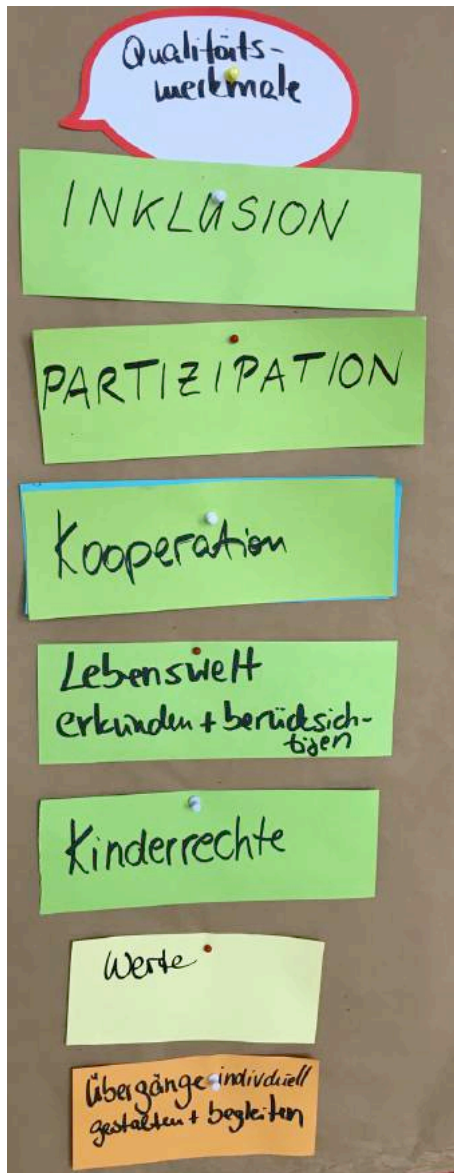 Qualitäts-
merkmale
INKLUSION
PARTIZIPATION
Kooperation
Lebenswelt
erkunden + berücksich-
tigen
Kinderrechte
Werte
Übergänge individuell
gestalten + begleiten